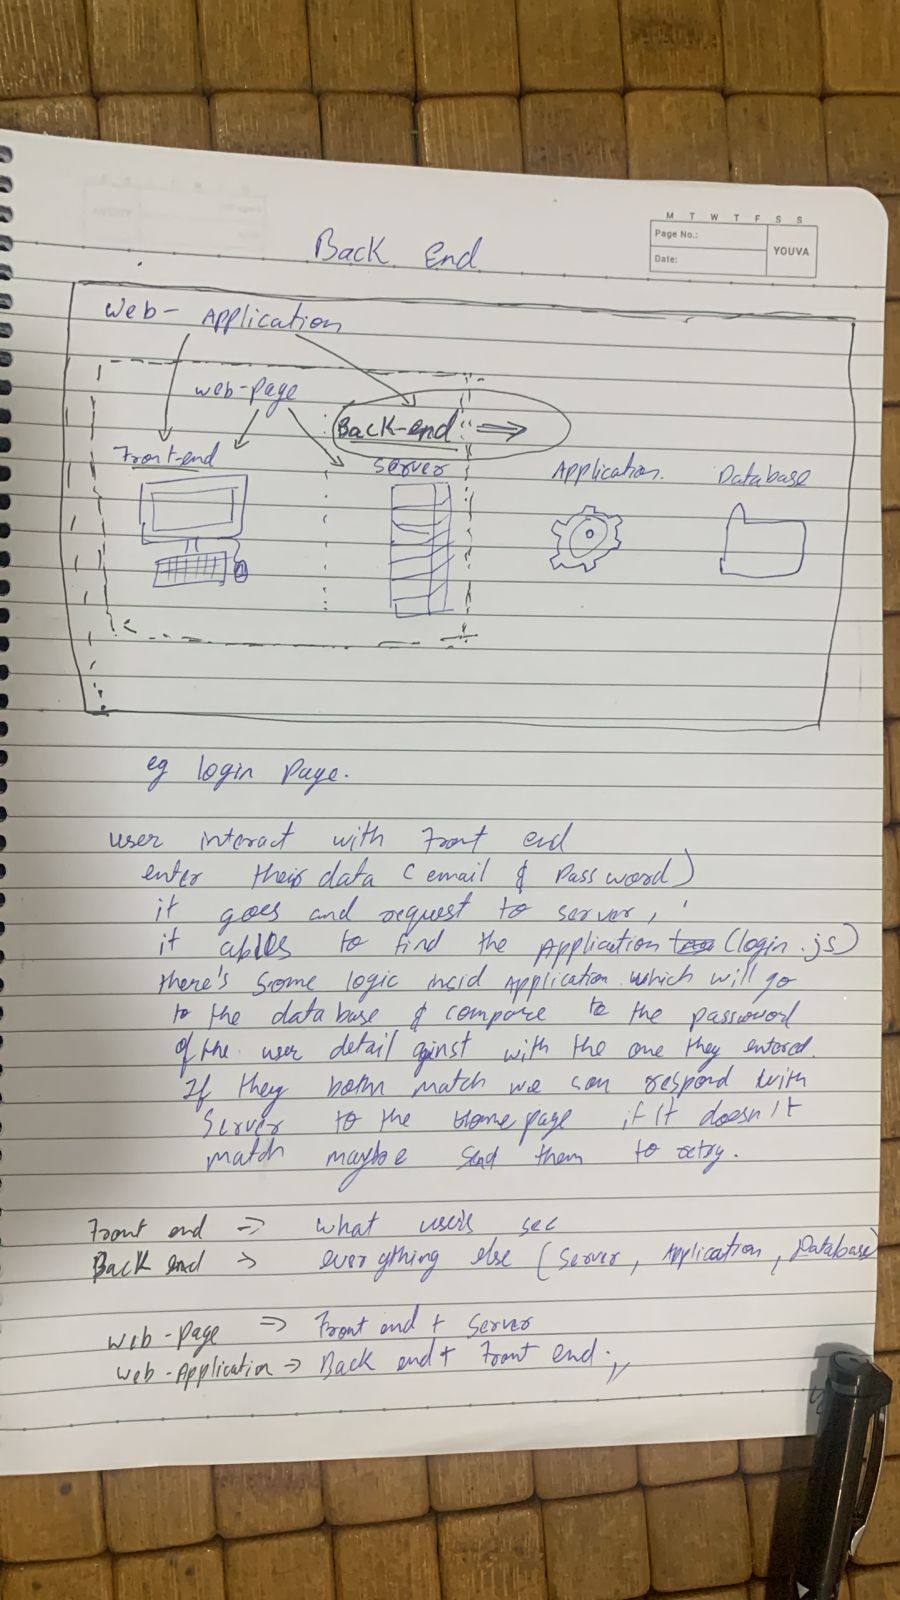 M T W T F S S
Page No.:
Date:
YOUVA
Back End
Web - Application
web-page
Back-end
Front-end
Server
Application.
Database
eg login page.
user interact with Front end
enter their data ( email & Password)
it goes and request to server,
it to find the Application (login.js)
there's some logic insid Application which will go
to the database & compare to the password
of the user detail aginst with the one they entered.
If they both match we can respond with
Server to the Home page if it doesn't
match maybe send them to retry.
Front end => what users see
Back end => everything else (Server, Application, Database)
Web-page => Front end + Server
Web-Application => Back end + Front end.